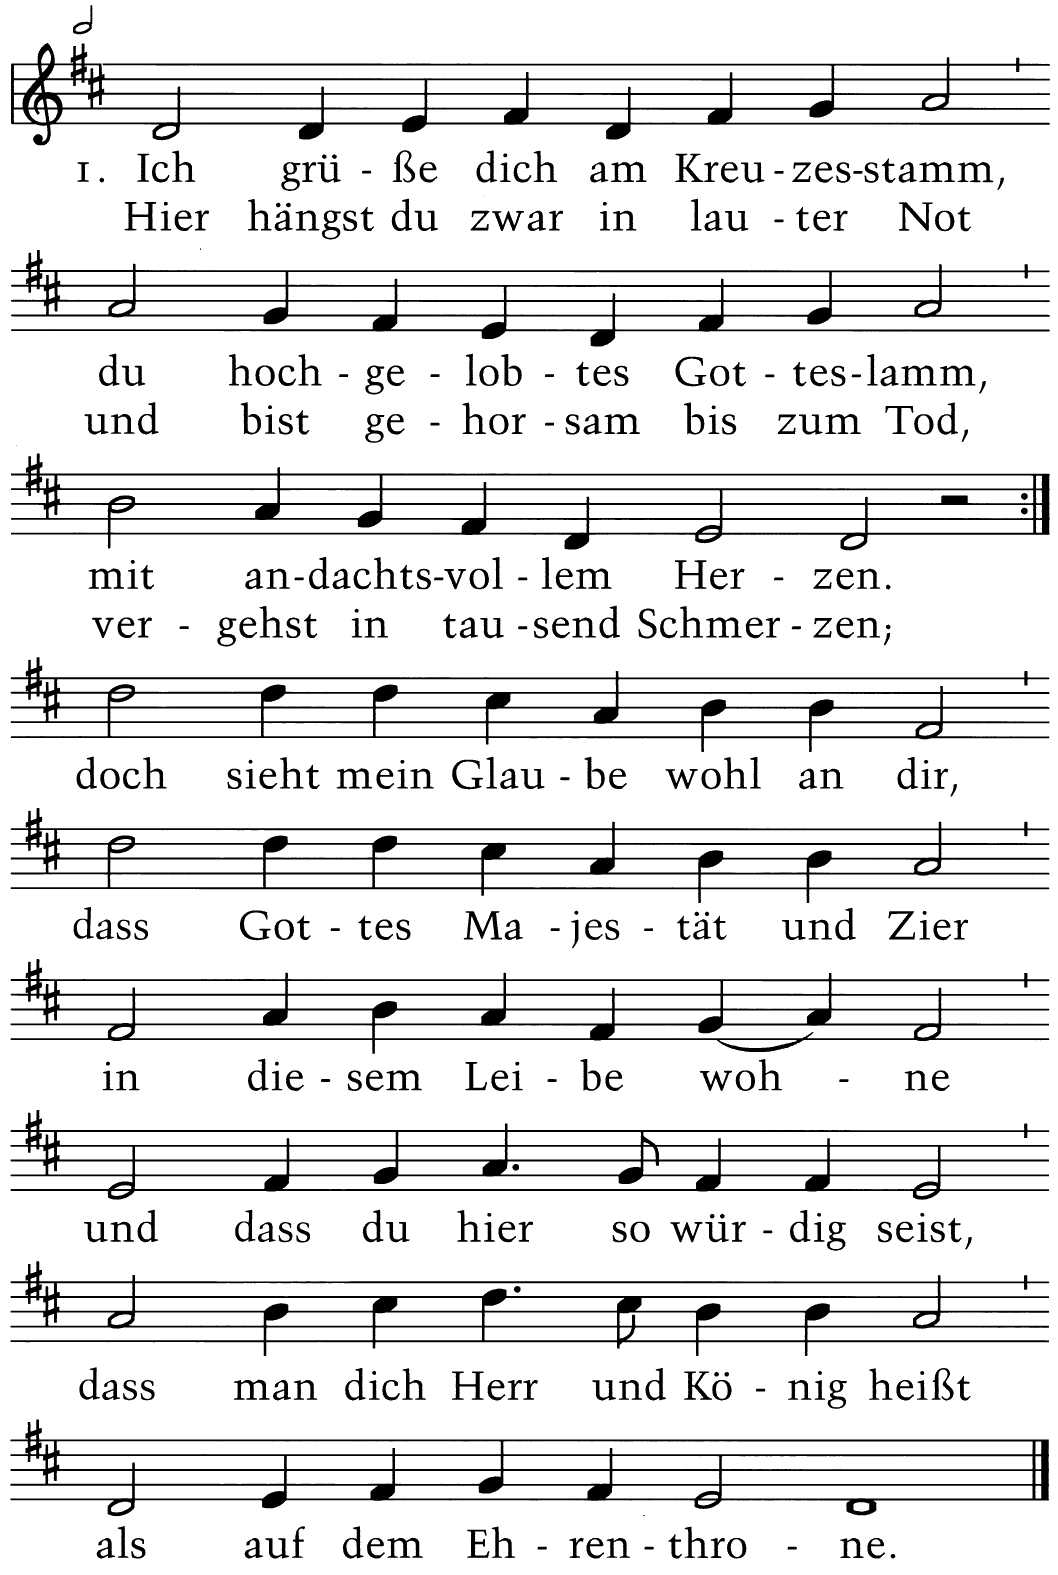 1. Ich grü - ße dich am Kreu - zes-stamm,
Hier hängst du zwar in lau - ter Not
du hoch - ge - lob - tes Got - tes-lamm,
und bist ge - hor - sam bis zum Tod,
mit an-dachts-vol - lem Her - zen.
ver - gehst in tau - send Schmer - zen;
doch sieht mein Glau - be wohl an dir,
dass Got - tes Ma - jes - tät und Zier
in die - sem Lei - be woh - ne
und dass du hier so wür - dig seist,
dass man dich Herr und Kö - nig heißt
als auf dem Eh - ren - thro - ne.